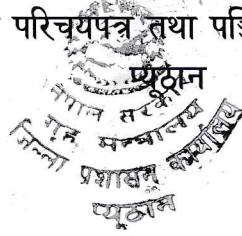 परिचयपत्र तथा
प्यूठान
नेपाल सरकार
गृह मन्त्रालय
जिल्ला प्रशासन कार्यालय
प्यूठान